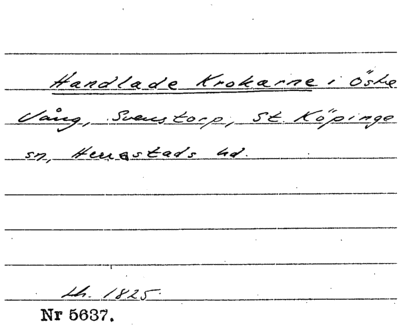 Handlade Krokarne i Östra
Vång, Svenstorp, St. Köpinge
sn, Herrestads hd.
Lh. 1825.
Nr 5637.